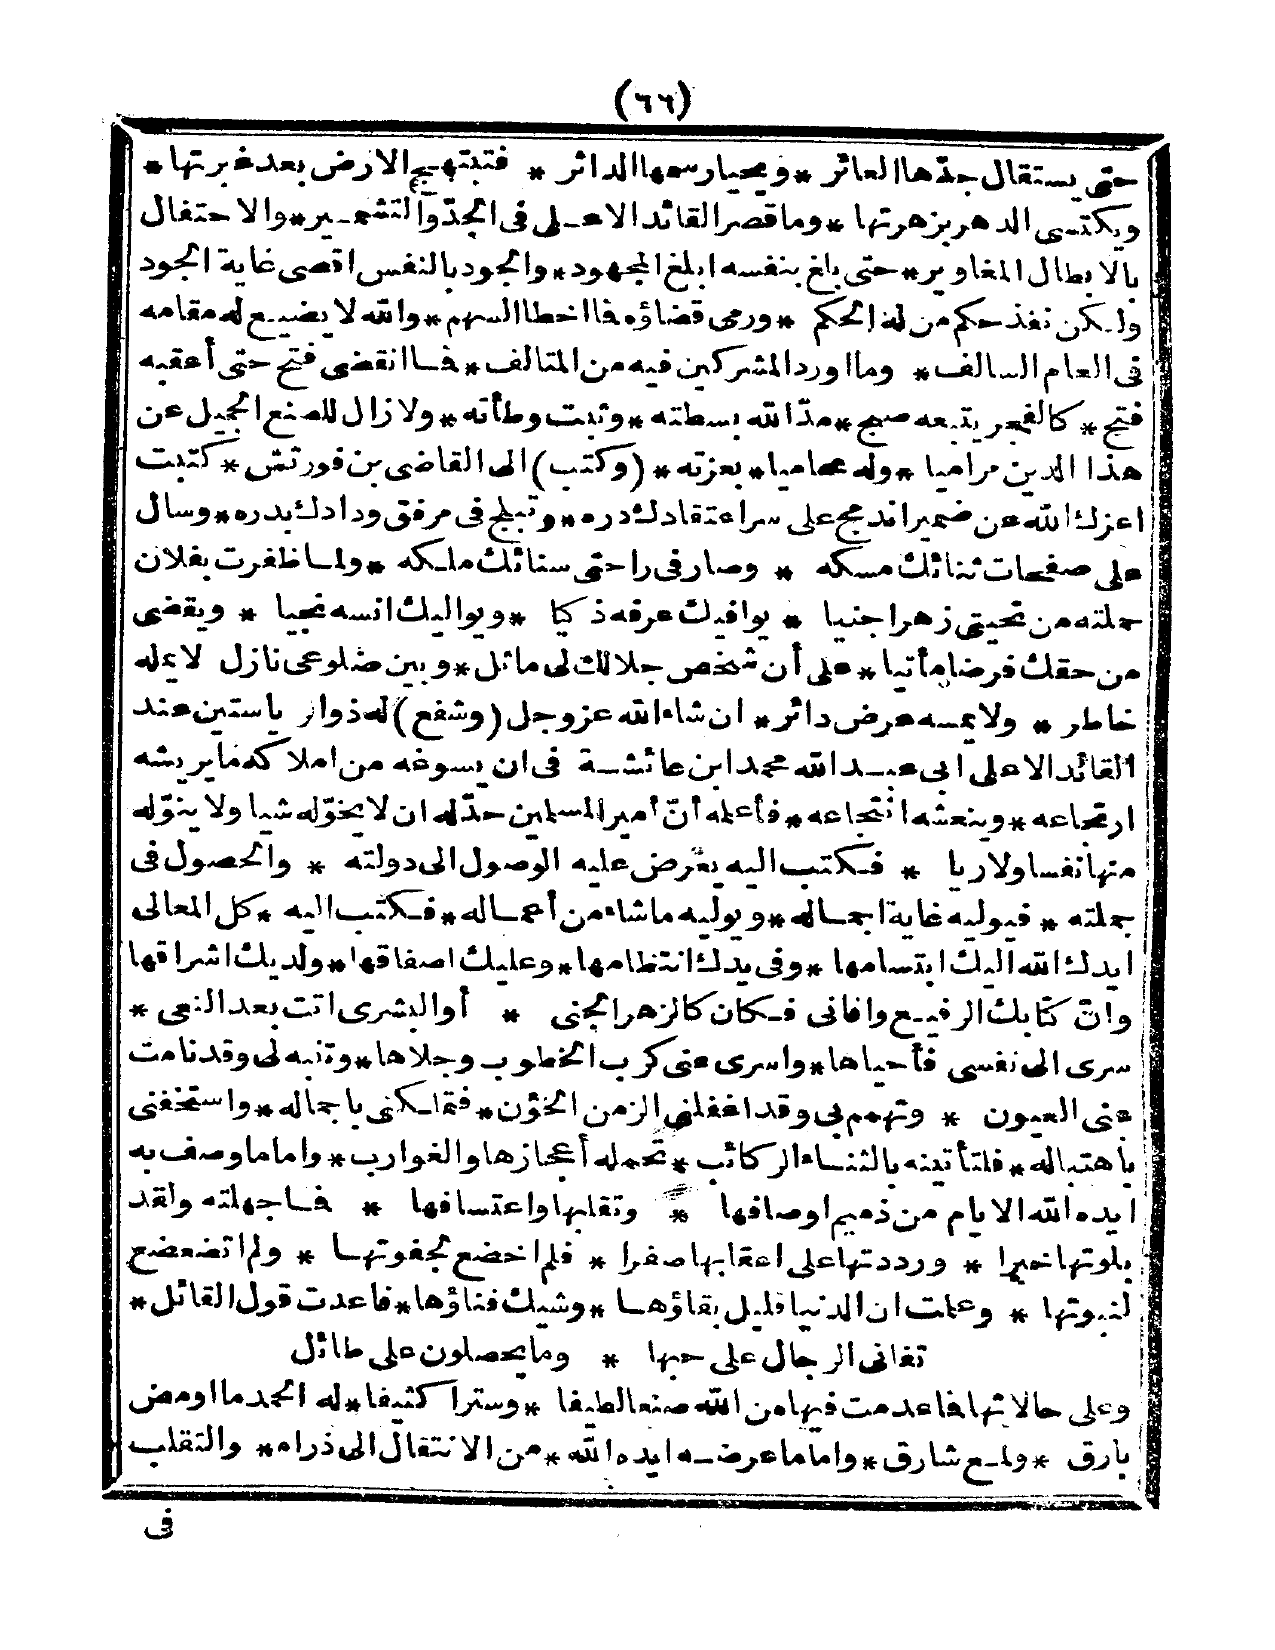 (٦٦)
حتى يستقال جدّها العاثر * ويحيا رسمها الداثر * فتبتهج الارض بعد غبرتها *
ويكتسى الدهر بزهرتها * وما قصر القائد الاعلى فى الجدّ والتشمير * والاحتفال
بالابطال المغاوير * حتى بلغ بنفسه ابلغ المجهود * والجود بالنفس اقصى غاية الجود
ولكن نفذ حكم من له الحكم * ورمى قضاؤه فما اخطا السهم * والله لا يضيع له مقامه
فى العام السالف * وما اورد المشركين فيه من المتالف * فما انقضى فتح حتى أعقبه
فتح * كالفجر يتبعه صبح * مدّ الله بسطته * وثبت وطأته * ولا زال للصنع الجميل عن
هذا الدين مراميا * وله محاميا * بعزته * (وكتب) الى القاضى بن فورتش * كتبت
اعزك الله عن ضمير اندمج على سر اعتقادك دره * وتبلج فى مرفق ودادك بدره * وسال
على صفحات ثنائك مسكه * وصار فى راحتى سنائك ملكه * ولما ظفرت بفلان
حملته من تحيتى زهرا جنيا * يوافيك عرفه ذكيا * ويواليك انسه نجيا * ويقضى
من حقك فرضا مأتيا * على أن شخص جلالك لى ماثل * وبين ضلوعى نازل لا يمله
خاطر * ولا يمسه عرض داثر * ان شاء الله عز وجل (وشفع) له ذوار ياستين عند
القائد الاعلى ابى عبد الله محمد ابن عائشة فى ان يسوغه من املاكه ما يريشه
ارتجاعه * وينعشه انتجاعه * فأعلمه أنّ أمير المسلمين حدّ له ان لا يخوّله شيا ولا ينوّله
منها نفسا ولا ريا * فكتب اليه يعرّض عليه الوصول الى دولته * والحصول فى
جملته * فيوليه غاية اجماله * ويوليه ما شاء من أعماله * فكتب اليه * كل المعالى
ايدك الله اليك ابتسامها * وفى يدك انتظامها * وعليك اصفاقها * ولديك اشراقها
وانّ كتابك الرفيع وافانى فكان كالزهر الجنى * أو البشرى اتت بعد النعى *
سرى الى نفسى فأحياها * واسرى عنى كرب الخطوب وجلاها * وتنبه لى وقد نامت
عنى العيون * وتهمم بى وقد اغفلنى الزمن الخؤن * فملكنى باجماله * واستخفنى
باهتباله * فلتأتينه بالثناء الركائب * تحمله أعجازها والغوارب * واما ما وصف به
ايده الله الايام من ذميم اوصافها * وتقلبها واعتسافها * فما جهلته ولقد
بلوتها خبرا * ورددتها على اعقابها صفرا * فلم اخضع لجفوتها * ولم اتضعضع
لنبوتها * وعلمت ان الدنيا قليل بقاؤها * وشيك فناؤها * فاعدت قول القائل *
تفانى الرجال على حبها * وما يحصلون على طائل
وعلى حالاتها فما عدمت فيها من الله صنعا لطيفا * وسترا كثيفا * له الحمد ما اومض
بارق * ولمع شارق * واما ما عرضه ايده الله * من الانتقال الى ذراه * والتقلب
فى